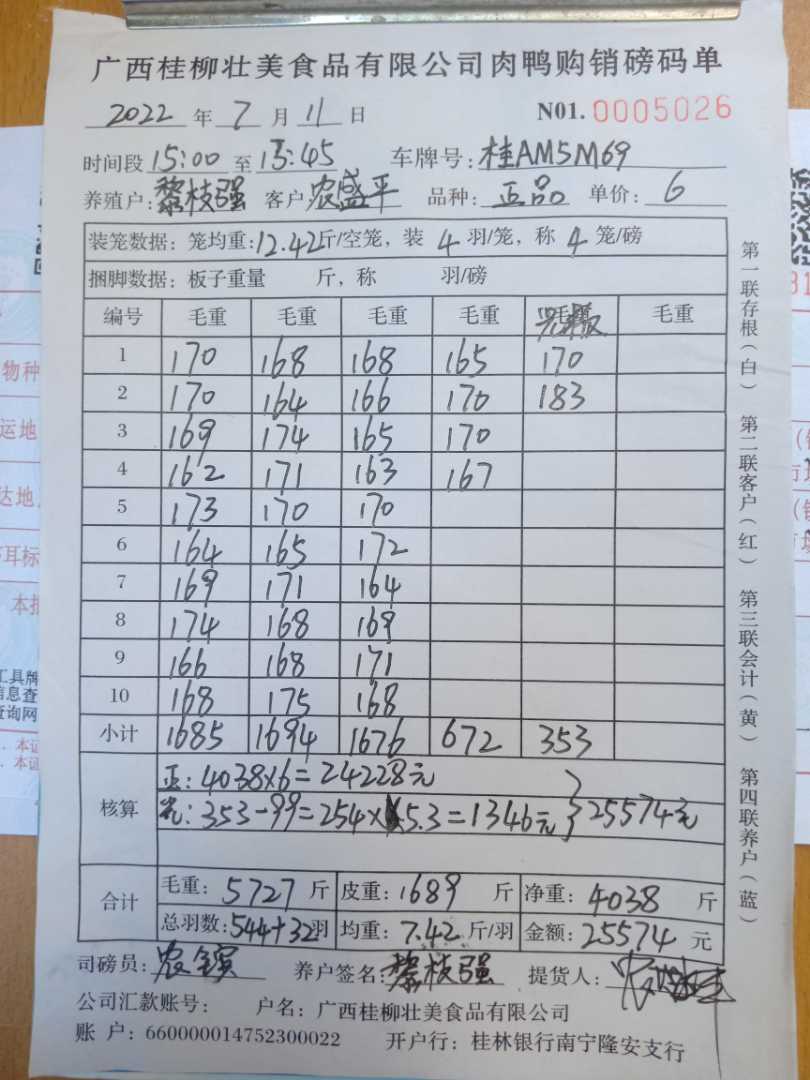 广西桂柳壮美食品有限公司肉鸭购销磅码单
2022 年 7 月 11 日 N01. 0005026
时间段 15:00 至 15:45 车牌号: 桂AM5M69
养殖户: 黎枝强 客户 农盛平 品种: 正品 单价: 6
装笼数据: 笼均重: 12.42斤/空笼, 装 4 羽/笼, 称 4 笼/磅
捆脚数据: 板子重量 斤, 称 羽/磅
编号 毛重 毛重 毛重 毛重 毛重
1 170 168 168 165 170
2 170 164 166 170 183
3 169 174 165 170
4 162 171 163 167
5 173 170 170
6 164 165 172
7 169 171 164
8 174 168 169
9 166 168 171
10 168 175 168
小计 1685 1694 1676 672 353
核算
正: 4038×6=24228元
353-99=254×5.3=1346元 } 25574元
合计
毛重: 5727 斤 皮重: 1689 斤 净重: 4038 斤
总羽数: 544+32羽 均重: 7.42 斤/羽 金额: 25574 元
司磅员: 养户签名: 黎枝强 提货人:
公司汇款账号: 户名: 广西桂柳壮美食品有限公司
账 户: 660000014752300022 开户行: 桂林银行南宁隆安支行
第一联存根(白) 第二联客户(红) 第三联会计(黄) 第四联养户(蓝)
物种
运地
达地
耳标
本批
工具牌
信息查
查询网
本证
本证